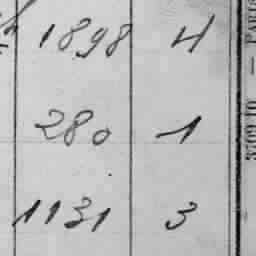 1898 4
280 1
1131 3